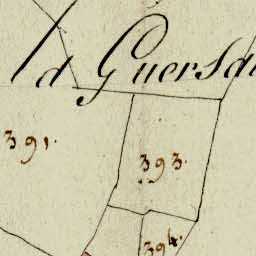 d Guersa
391.
393.
394.